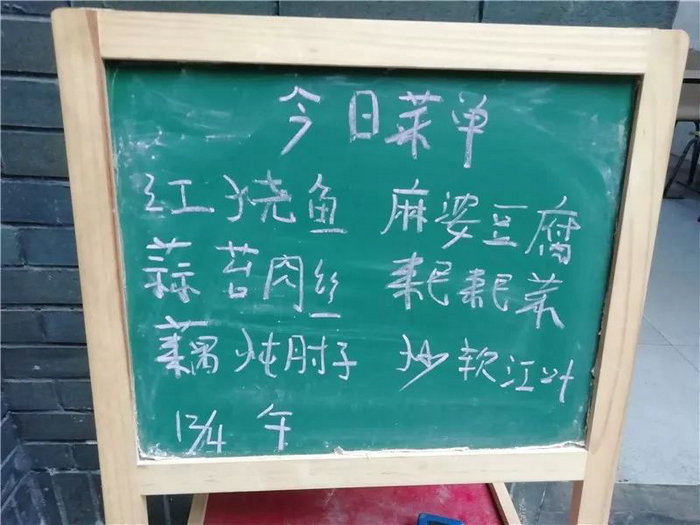 今日菜单
红烧鱼 麻婆豆腐
蒜苔肉丝 耗耗菜
藕炖肘子 炒软江叶
12/4 午